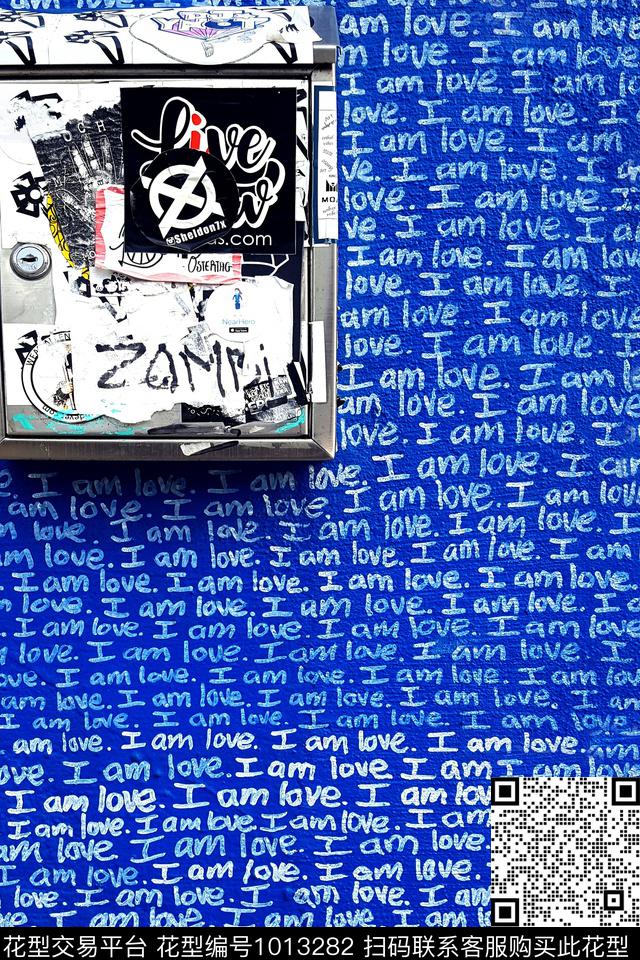 am love. I am love. I am love. I am love
I am love. I am love
m love. I am love. I
I am love. I am lo
love. I am love. I
I am love. I am love
ve. I am love. I am
love. I am love. I
ve. I am love. I am
I am love. I am love
love. I am love. I
am love. I am love
love. I am love. I
I am love. I am l
am love. I am love
love. I am love. I
live
@Sheldon7k
s.com
OSTERTAG
NearHero
ZOMBI
e. I am love. I am love. I am love. I am
am love. I am love. I am love. I am lov
m love. I am love. I am love. I am love. I
am love. I am love. I am love. I am love. I am
I am love. I am love. I am love. I am love.
love. I am love. I am love. I am love. I
I am love. I am love. I am love. I am love
love. I am love. I am love. I am love. I am
ove. I am love. I am love. I am love. I am
am love. I am love. I am love. I am love. I am
I am love. I am love. I am love. I am love.
am love. I am love. I am love. I am love.
ove. I am love. I am love. I am love. I am
I am love. I am love. I am lov
I am love. I am love. I am love. I am
am love. I am love. I am love.
I am love. I am love. I am love.
love. I am love. I am love. I
花型交易平台 花型编号1013282 扫码联系客服购买此花型